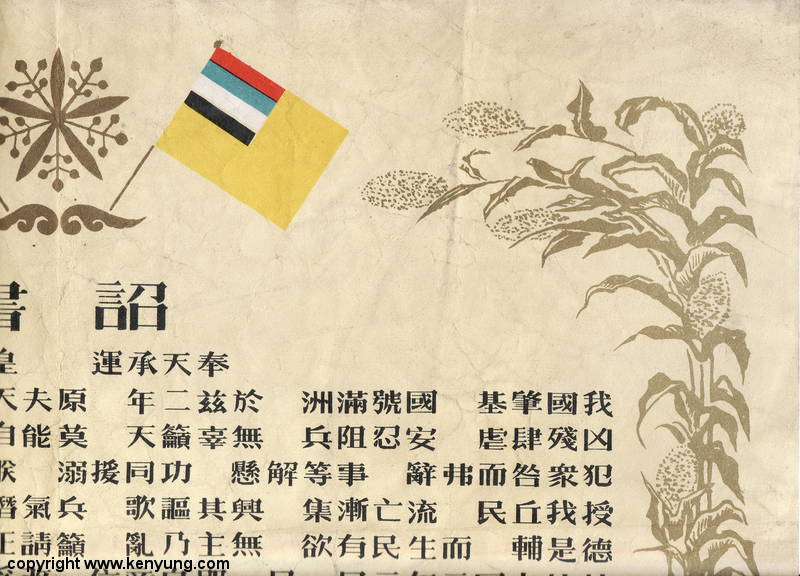 詔書
奉天承運 皇
我國肇基 國號滿洲 於茲二年 原夫天
凶殘肆虐 安忍阻兵 無辜籲天 莫能自
犯眾咎而弗辭 事等解懸 功同援溺 朕
授我丘民 流亡漸集 興其謳歌 兵氣潛
德是輔 而生民有欲 無主乃亂 籲請正
copyright www.kenyung.com